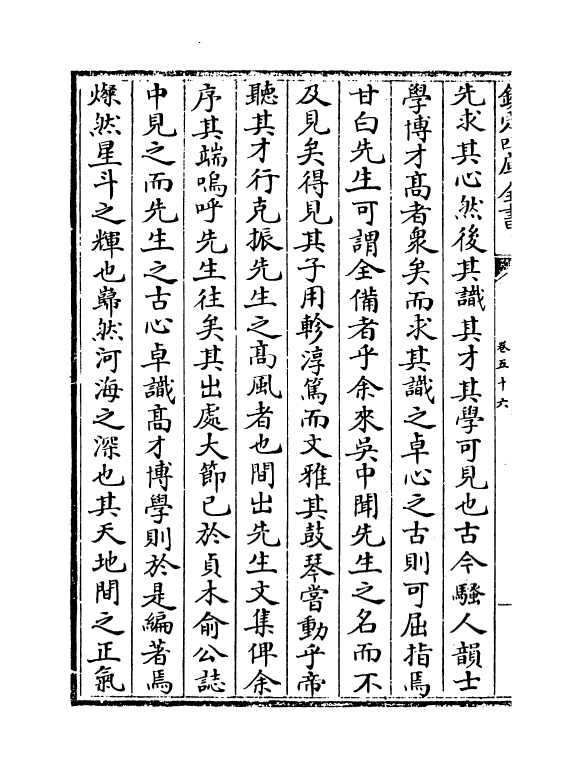 欽定四庫全書
卷五十六
先求其心然後其識其才其學可見也古今騷人韻士
學博才髙者衆矣而求其識之卓心之古則可屈指焉
甘白先生可謂全備者乎余來吳中聞先生之名而不
及見矣得見其子用軫淳篤而文雅其鼓琴嘗動乎帝
聽其才行克振先生之髙風者也間出先生文集俾余
序其端嗚呼先生往矣其出處大節已於貞木俞公誌
中見之而先生之古心卓識髙才博學則於是編著焉
燦然星斗之輝也巋然河海之深也其天地間之正氣